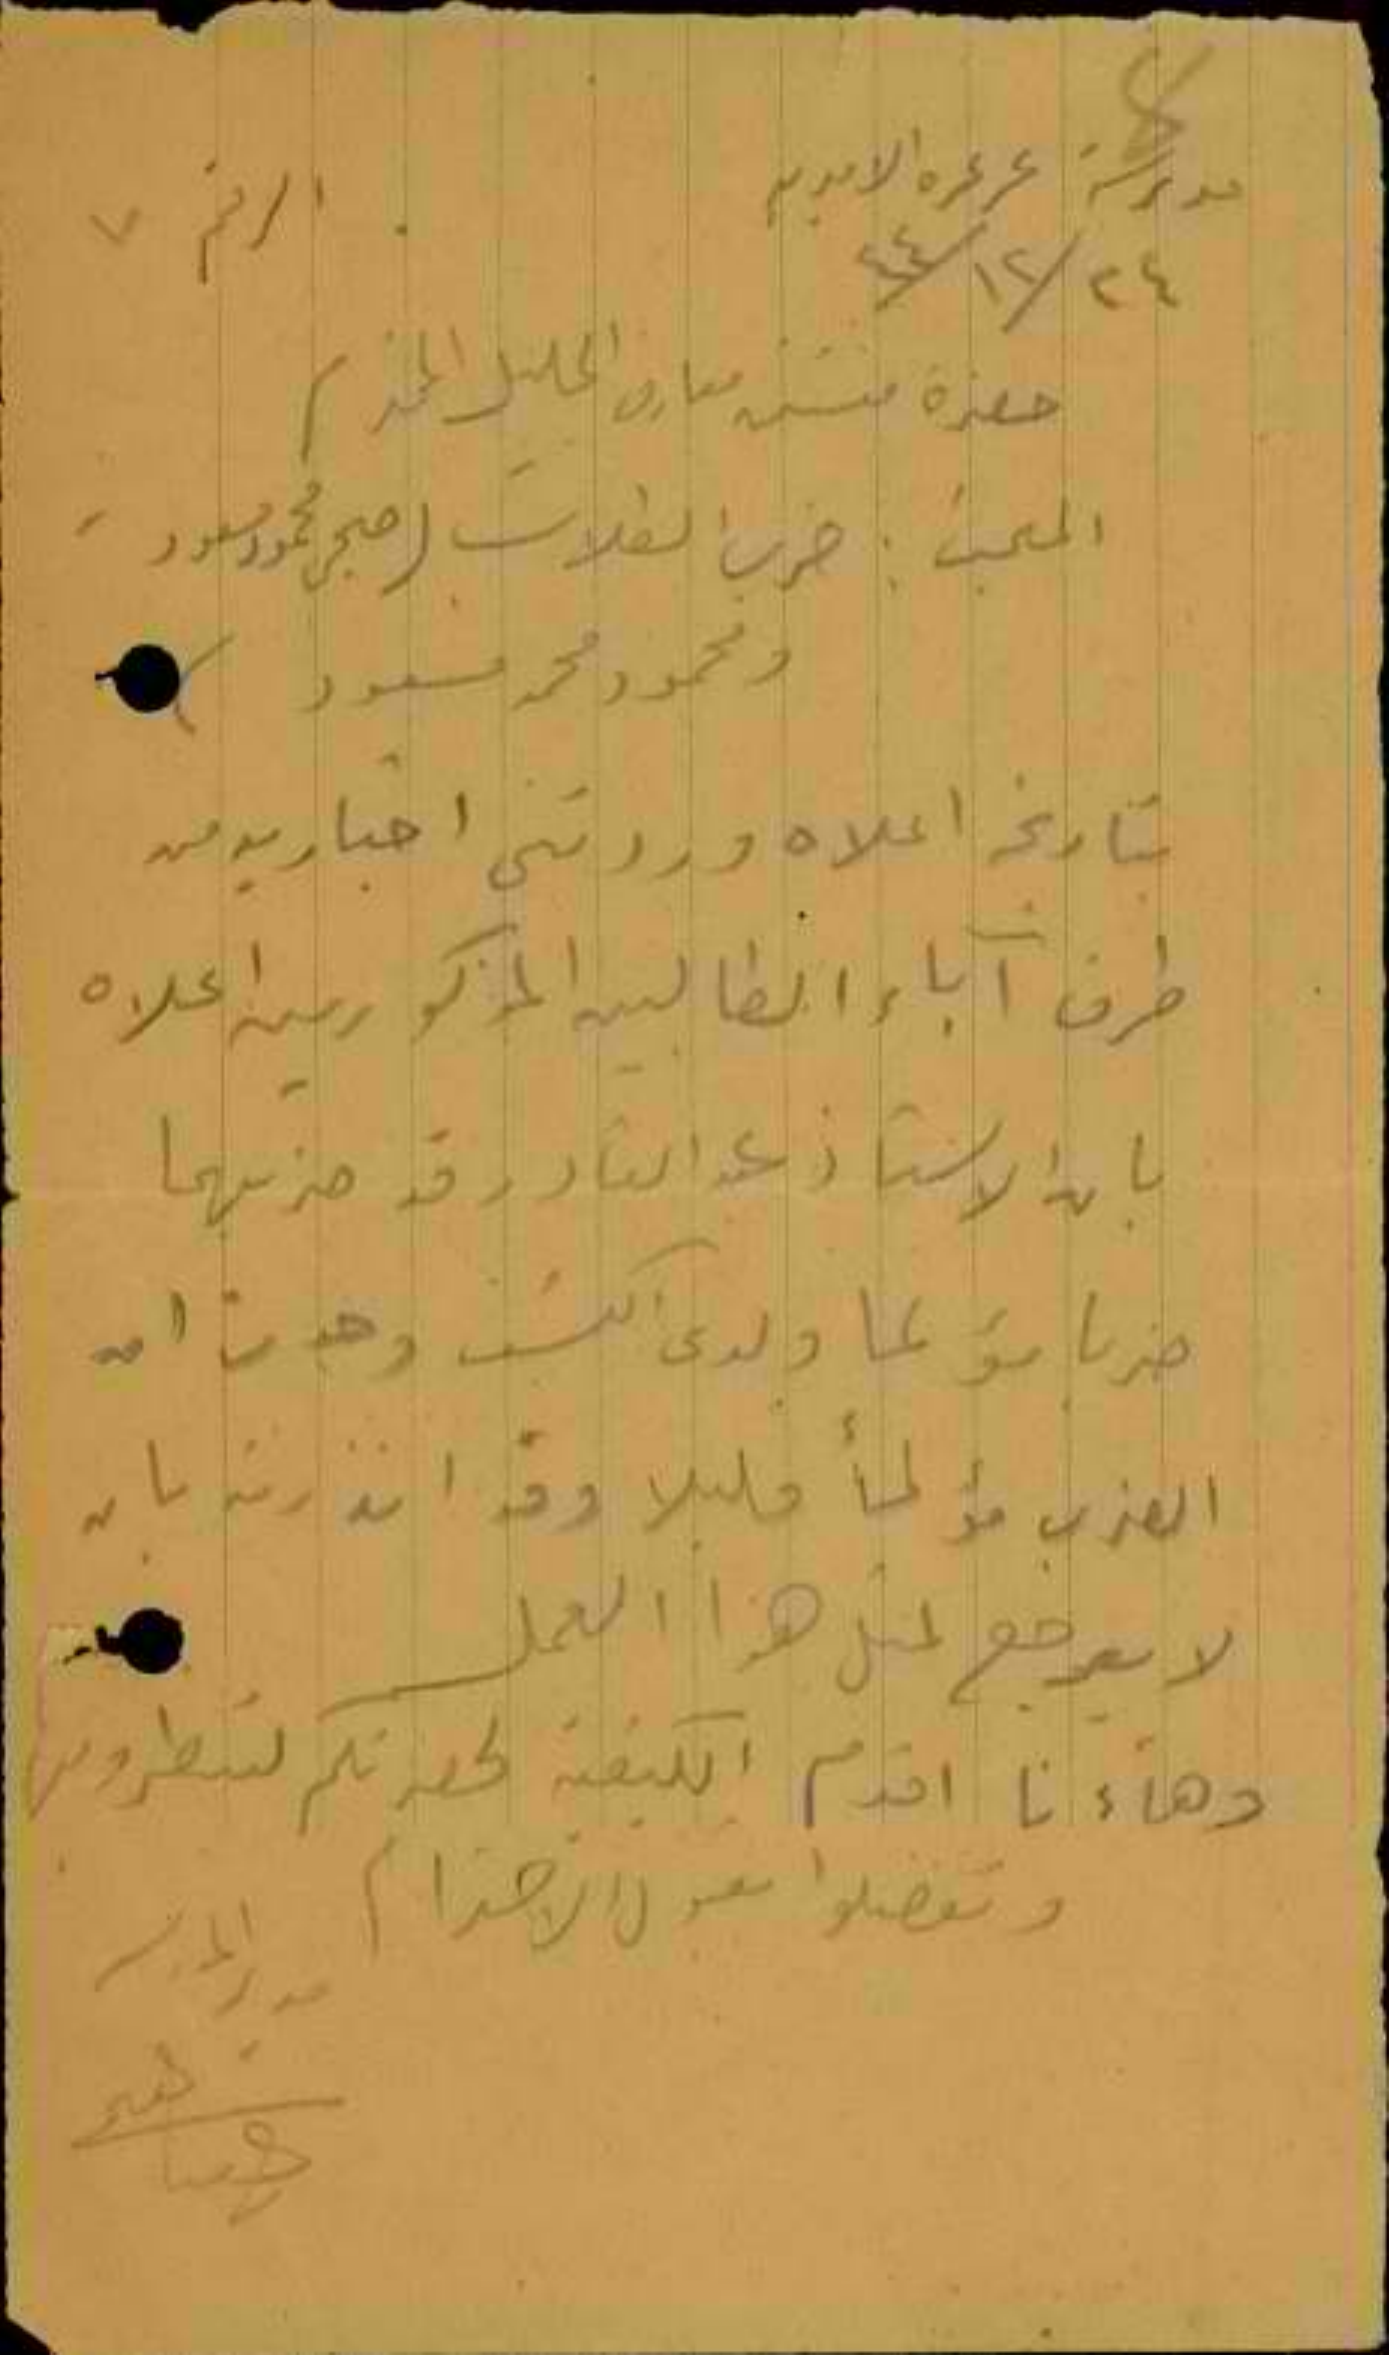 مدرسة عرعره الاميريه
الرقم ٧
٢٤/١٢/٤٤
حضرة مفتش معارف الجليل المحترم
المبحث : ضرب الطلاب (صبحي محمود مسعود
ومحمود محمد مسعود )
بتاريخ اعلاه وردتني اخباريه من
طرف آباء الطالبين المذكورين اعلاه
بان الاستاذ عبد القادر قد ضربهما
ضربا مؤلما ولدى الكشف وجدت ان
الضرب مؤلماً قليلا وقد انذرته بان
لا يرجع لمثل هذا العمل
وهاءنا اقدم الكيفية لحضرتكم لتنظروا بها
وتفضلوا بقبول الاحترام
مدير المدرسة